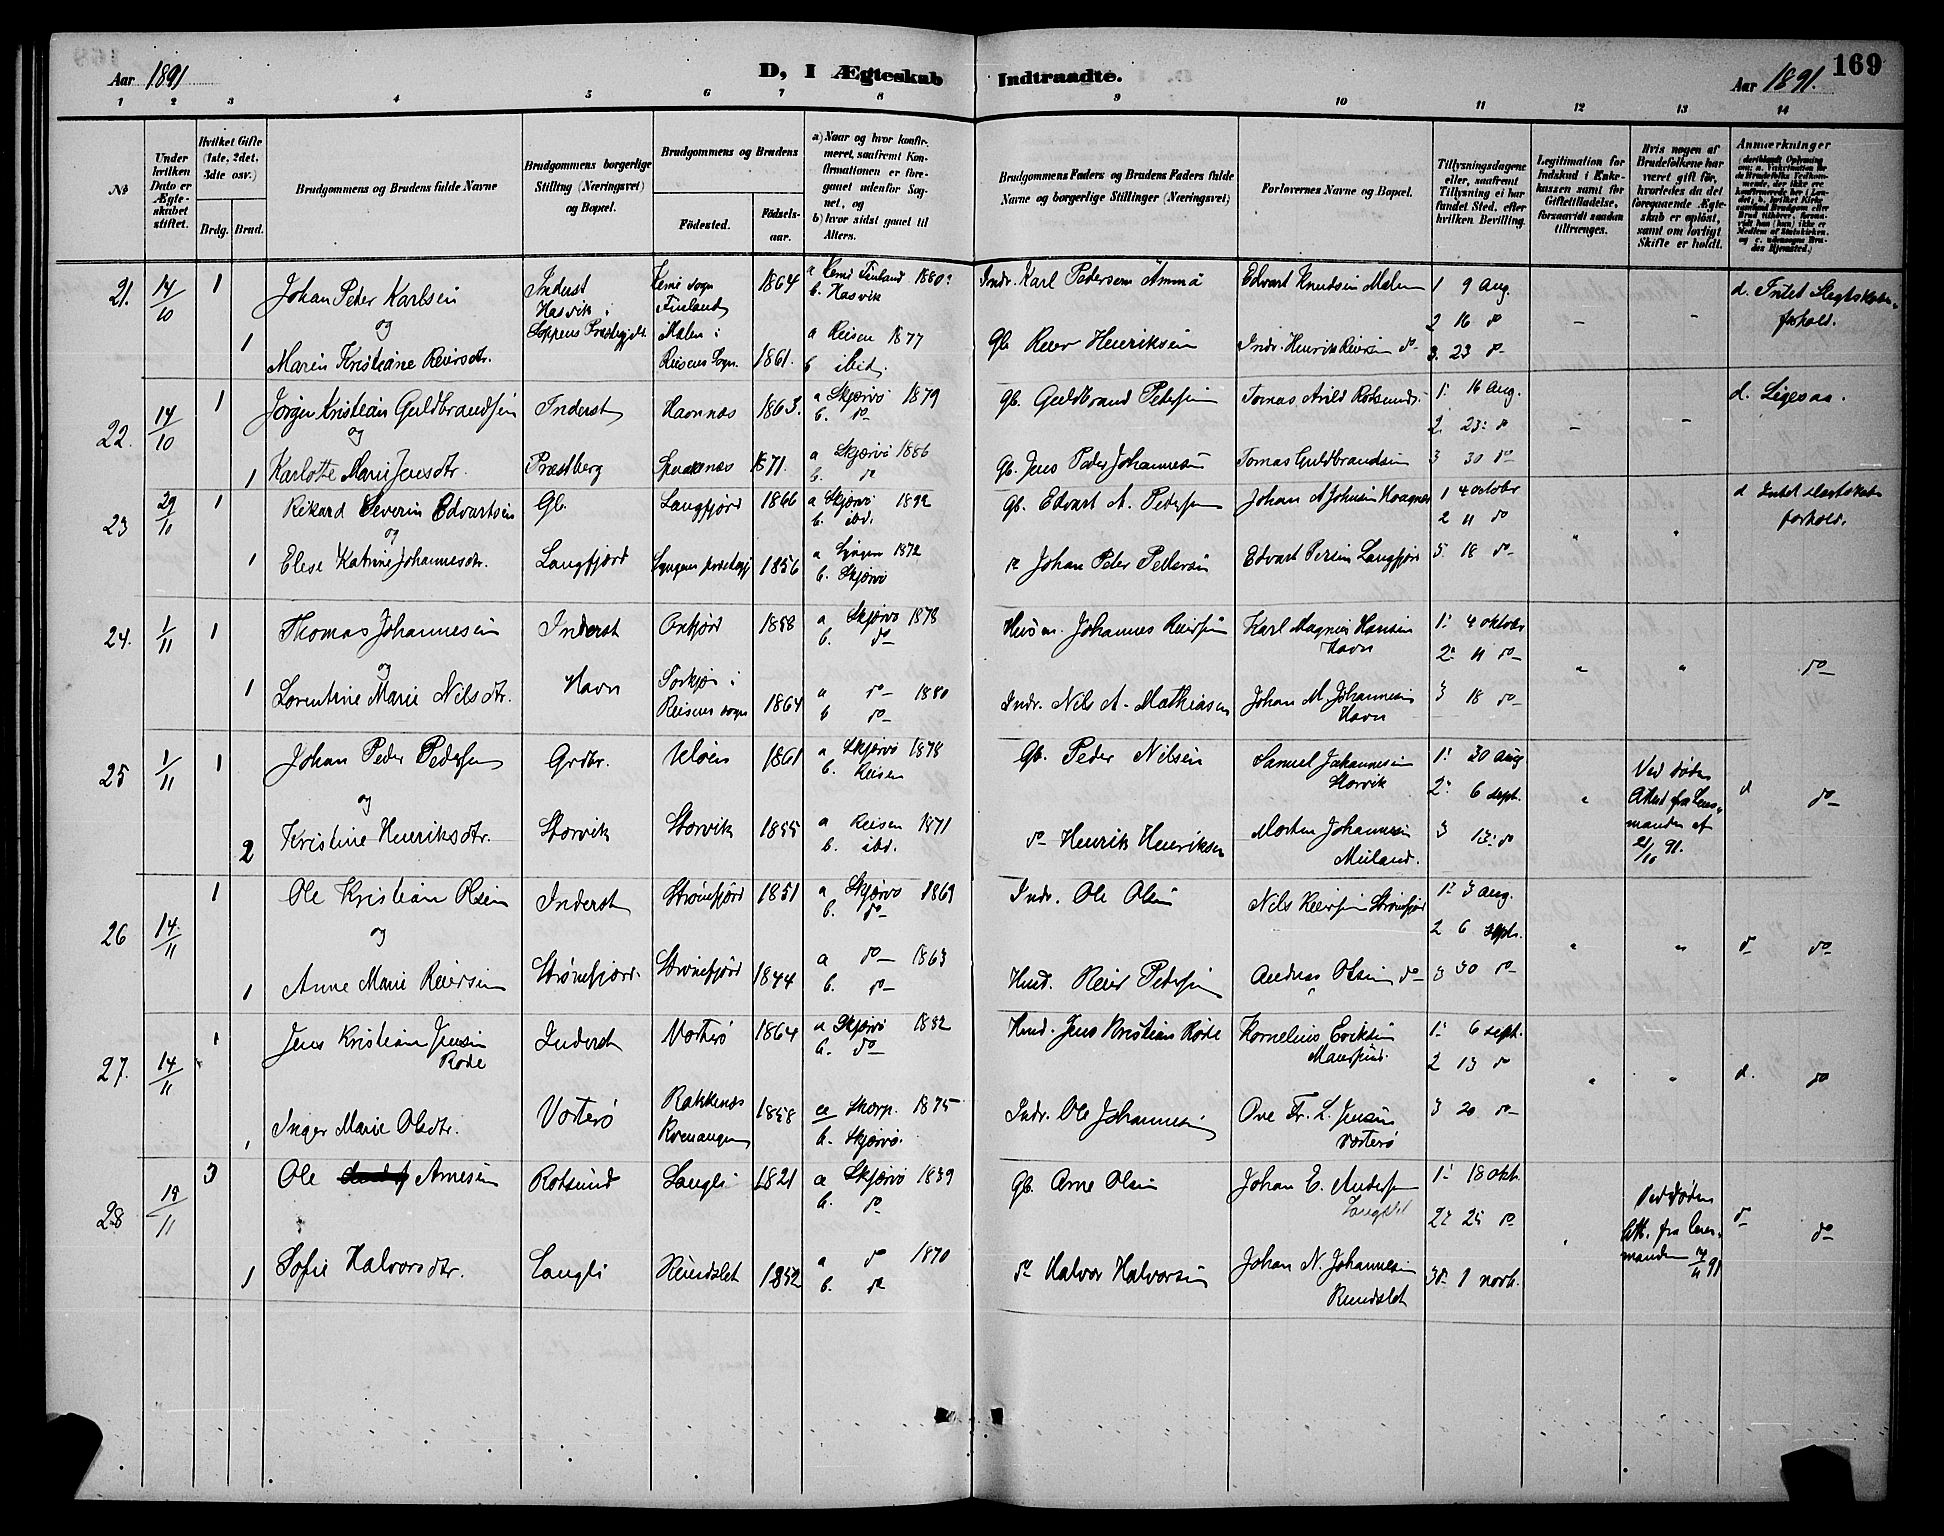 169
Aar 1891
D, I Ægteskab Indtraadte.
Aar 1891.
1 2 3 4 5 6 7 8 9 10 11 12 13 14
No
Under hvilken Dato er Ægteskabet stiftet.
Hvilket Gifte (1ste, 2det, 3die osv.)
Brdg. Brud.
Brudgommens og Brudens fulde Navne
Brudgommens borgerlige Stilling (Næringsvei) og Bopæl.
Brudgommens og Brudens
Fødested.
Fødselsaar.
a) Naar og hvor konfirmeret, saafremt Konfirmationen er foregaaet udenfor Sognet, og
b) hvor sidst gaaet til Alters.
Brudgommens Faders og Brudens Faders fulde Navne og borgerlige Stillinger (Næringsvei)
Forlovernes Navne og Bopæl.
Tillysningsdagene eller, saafremt Tillysning ei har fundet Sted, efter hvilken Bevilling.
Legitimation for Indskud i Enkekassen samt for Giftetilladelse, forsaavidt saadan tiltrænges.
Hvis nogen af Brudefolkene har været gift før, hvorledes da det foregaaende Ægteskab er opløst, samt om lovligt Skifte er holdt.
Anmærkninger
21. 14/10 1 Johan Peder Karlsen Inderst Kemi sogn Finland 1864 a Kemi Finland 1880 b. Hasvik Indr. Karl Pedersen Ämmä Edvart Knudsen Malen 1 9 Aug. d. Intet Slegtskabsforhold.
og Hasvik i Loppens Præstegjeld. 2 16 do
1 Maren Kristiane Reiersdtr. Malen i Reisens Sogn. 1861. a Reisen 1877 b ibid. Gb. Reier Henriksen Indr. Henrik Reiersen do 3. 23 do
22. 14/10 1 Jørgen Kristian Guldbrandsen Inderst Havnnæs 1863. a Skjærvø 1879 b. do Gb. Guldbrand Pedersen Tomas Arild Rotsund. 1. 16 Aug. d. Ligesaa.
og 2. 23 do
1 Karlotte Marie Jensdtr. Præstberg Spraaknæs 1871. a Skjærvø 1886 b. do Gb. Jens Peder Johannesen Tomas Guldbrandsen 3 30 do
23 29/11 1 Rikard Severin Edvartsen Gb. Langfjord 1866 a Skjærvø 1892 b. ibd. Gb. Edvart A. Pedersen Johan A Johnsen 1 4 october d Intet slegtskabsforhold.
og 2 11 do
1 Elese Katrine Johannesdtr. Langfjord Lyngens præstegj 1856 a Lyngen 1872 b. Skjærvø do Johan Peter Pettersen Edvart Persen Langfjord 3. 18 do
24. 1/11 1 Thomas Johannesen Inderst Oxfjord 1858 a Skjærvø 1878 b. do Husm. Johannes Reiersen Karl Magnus Hansen Havn 1. 4 oktobr
og 2. 11 do
1 Lorentine Marie Nilsdtr. Havn Torkjøs i Reisens sogn 1864 a do 1880 b do Indr. Nils A. Mathiasen Johan M. Johannesen Havn 3 18 do do
25 1/11 1 Johan Peder Pedersen Grdbr. Uløen 1861 a Skjærvø 1878 b. Reisen Gb. Peder Nilsen Samuel Johannesen Storvik 1. 30 aug Ved døden
og 2. 6 sept. Attest fra Lensmanden af 21/10 91. d do
2 Kristine Henriksdtr. Storvik Storvik 1855 a Reisen 1871 b. ibd. do Henrik Henriksen Morten Johannesen Meiland. 3 13 do
26 14/11 1 Ole Kristian Olsen Inderst Strømfjord 1851 a Skjærvø 1869 b. do Indr. Ole Olsen Nils Reiersen Strømfjord 1. 3 aug.
og 2 6 sept. do do
1 Anne Marie Reiersen Strømfjord. Strømfjord 1844 a do 1863 b. do Husd. Reier Pedersen Andreas Olsen do 3 30 do
27. 14/11 1 Jens Kristian Jensen Røde Inderst Vorterø 1864 a Skjærvø 1882 b. do Husd. Jens Kristian Røde Kornelius Eriksen 1. 6 sept.
2 13 do d. do
1 Inger Marie Olsdtr. Vorterø Rakkenæs Kvenangen 1858 a Skorp. 1875 b. Skjærvø. Indr. Ole Johannesen Ove Fr. L. Jensen Vorterø 3 20 do
28 19/11 3 Ole Arnesen Rotsund Langli 1821 a Skjærvø 1839 b. do Gb. Arne Olsen Johan E. Andersen Langslet 1. 18 okt. Ved døden
2. 25 do Att. fra Lensmanden 91 do do
1 Sofie Halvorsdtr. Langli Rundslet 1852 a do 1870 b. do do Halvor Halvorsen Johan N. Johannesen Rundslet 3die 1 novb.